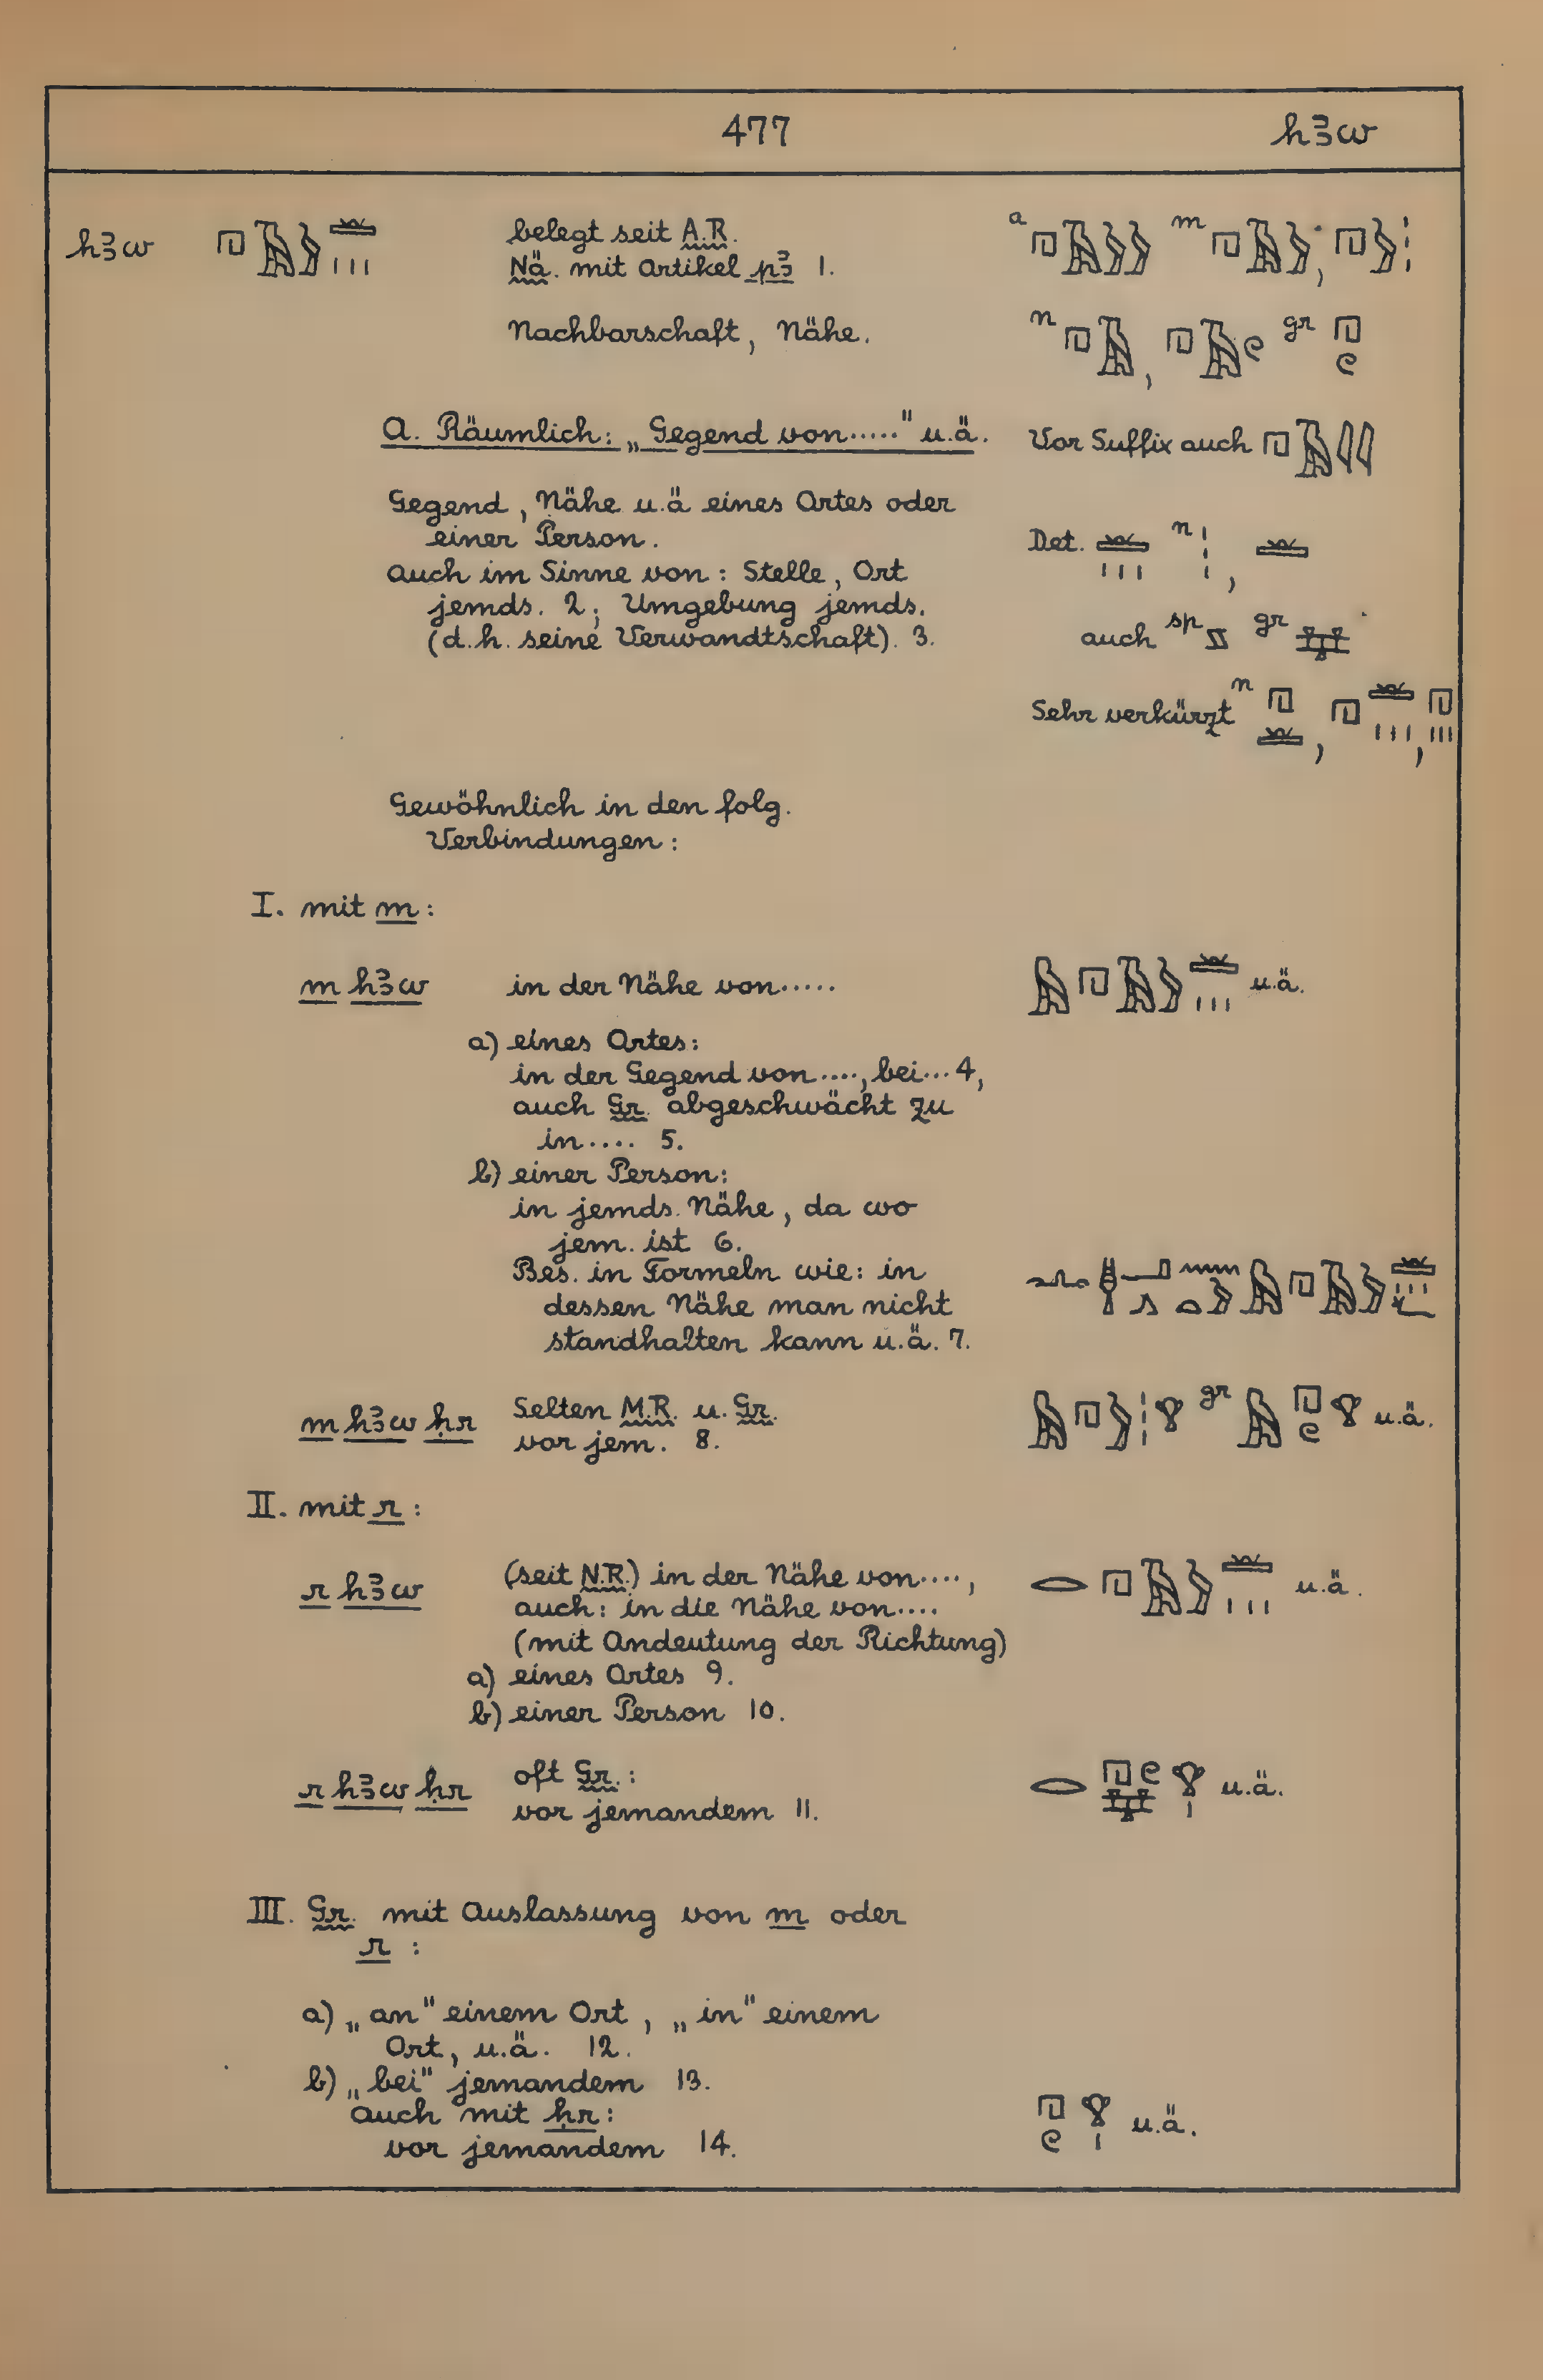 477 hꜣw
hꜣw belegt seit A.R.
Nä. mit Artikel pꜣ 1.
a m
Nachbarschaft, Nähe.
n gr
A. Räumlich: „Gegend von....." u.ä.
Vor Suffix auch
Gegend, Nähe u.ä eines Ortes oder
einer Person.
Det. n
auch im Sinne von: Stelle, Ort
jemds. 2; Umgebung jemds.
(d.h. seine Verwandtschaft). 3.
auch sp gr
Sehr verkürzt n
Gewöhnlich in den folg.
Verbindungen:
I. mit m:
m hꜣw in der Nähe von..... u.ä.
a) eines Ortes:
in der Gegend von...., bei... 4,
auch Gr. abgeschwächt zu
in.... 5.
b) einer Person:
in jemds. Nähe, da wo
jem. ist 6.
Bes. in Formeln wie: in
dessen Nähe man nicht
standhalten kann u.ä. 7.
m hꜣw ḥr Selten M.R. u. Gr.
vor jem. 8.
gr u.ä.
II. mit r:
r hꜣw (seit N.R.) in der Nähe von...., u.ä.
auch: in die Nähe von....
(mit Andeutung der Richtung)
a) eines Ortes 9.
b) einer Person 10.
r hꜣw ḥr oft Gr.: u.ä.
vor jemandem 11.
III. Gr. mit Auslassung von m oder
r :
a) „an" einem Ort, „in" einem
Ort, u.ä. 12.
b) „bei" jemandem 13.
auch mit ḥr:
vor jemandem 14.
u.ä.